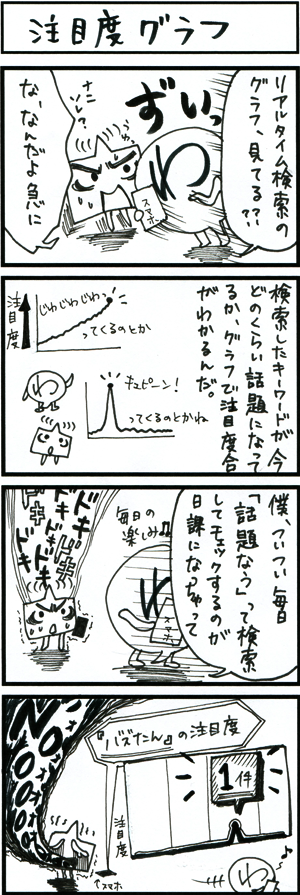 注目度グラフ
リアルタイム検索の
グラフ、見てる??
ずいっ
わ
スマホ
ナニ
ソレ?
な、なんだよ急に
検索したキーワードが今
どのくらい話題になって
るか、グラフで注目度合
がわかるんだ。
注目度
じわじわじわっ
ってくるのとか
わ
キュピーン!
ってくるのとかね
僕、ついつい毎日
「話題なう」って検索
してチェックするのが
日課になっちゃって
毎日の
楽しみ♫
わ
スマホ
ドキ
ドキ
ドキ
ドキ
『バズたん』の注目度
1件
注目度
スマホ
わ
NOOOO